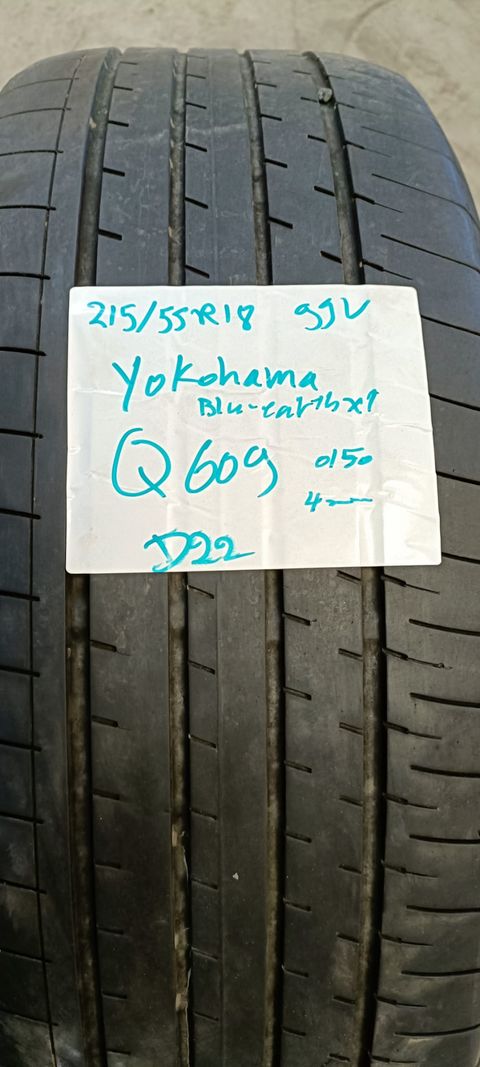 215/55R18 99V
Yokohama
Blu-earth xT
Q609 0150
4mm
D22